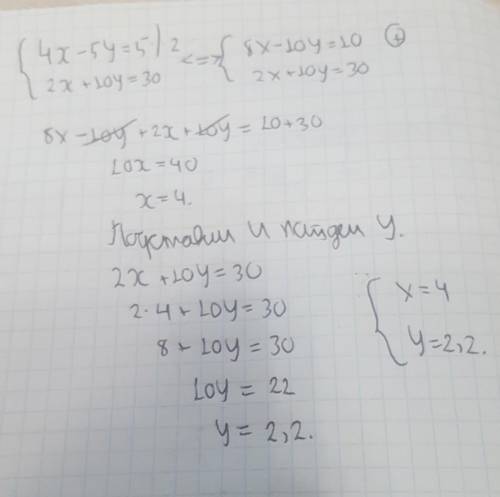 { 4x - 5y = 5 | 2 <=> { 8x - 10y = 10 (+)
2x + 10y = 30 2x + 10y = 30
8x - 10y + 2x + 10y = 10 + 30
10x = 40
x = 4.
Подставим и найдем y.
2x + 10y = 30
2·4 + 10y = 30
8 + 10y = 30
10y = 22
y = 2,2.
{ x = 4
y = 2,2.